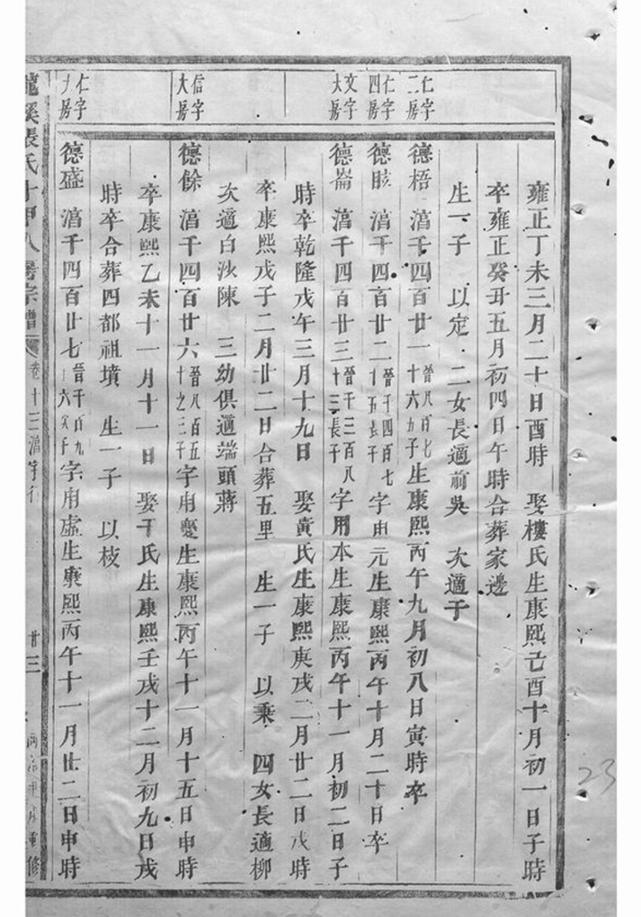 雍正丁未三月二十日酉時 娶樓氏生康熙己酉十月初一日子時
卒雍正癸丑五月初四日午時合葬家邊
生一子 以定 二女長適前吳 次適于
仁字二房
德梧 滀千四百廿一 晉八百七十六九子 生康熙丙午九月初八日寅時卒
仁字四房
德眩 滀千四百廿二 晉千四百七十五長子 字用元生康熙丙午十月二十日卒
文字大房
德崙 滀千四百廿三 晉千三百八十三長子 字用本生康熙丙午十一月初二日子
時卒乾隆戊午三月十九日 娶黃氏生康熙庚戌二月廿二日戌時
卒康熙戊子二月廿二日合葬五里 生一子 以乘 四女長適柳
次適白沙陳 三幼俱適端頭蔣
信字大房
德餘 滀千四百廿六 晉八百五十之三子 字用夔生康熙丙午十一月十五日申時
卒康熙乙未十一月十一日 娶于氏生康熙壬戌十二月初九日戌
時卒合葬四都祖墳 生一子 以枝
仁字九房
德盛 滀千四百廿七 晉千百九十六次子 字用虛生康熙丙午十一月廿二日申時
龍溪張氏十甲八房宗譜 卷十三滀字行 廿三 重修
23